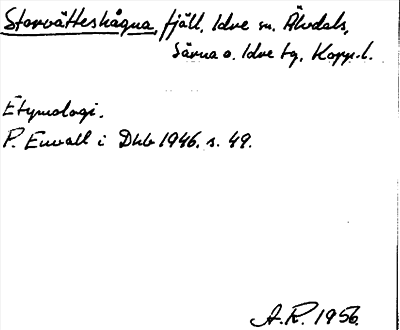 Storvätteshågna, fjäll, Idre sn. Älvdals,
Särna o. Idre tg, Kopp.l.
Etymologi.
P. Envall i Dhb 1946. s. 49.
A.R. 1956.